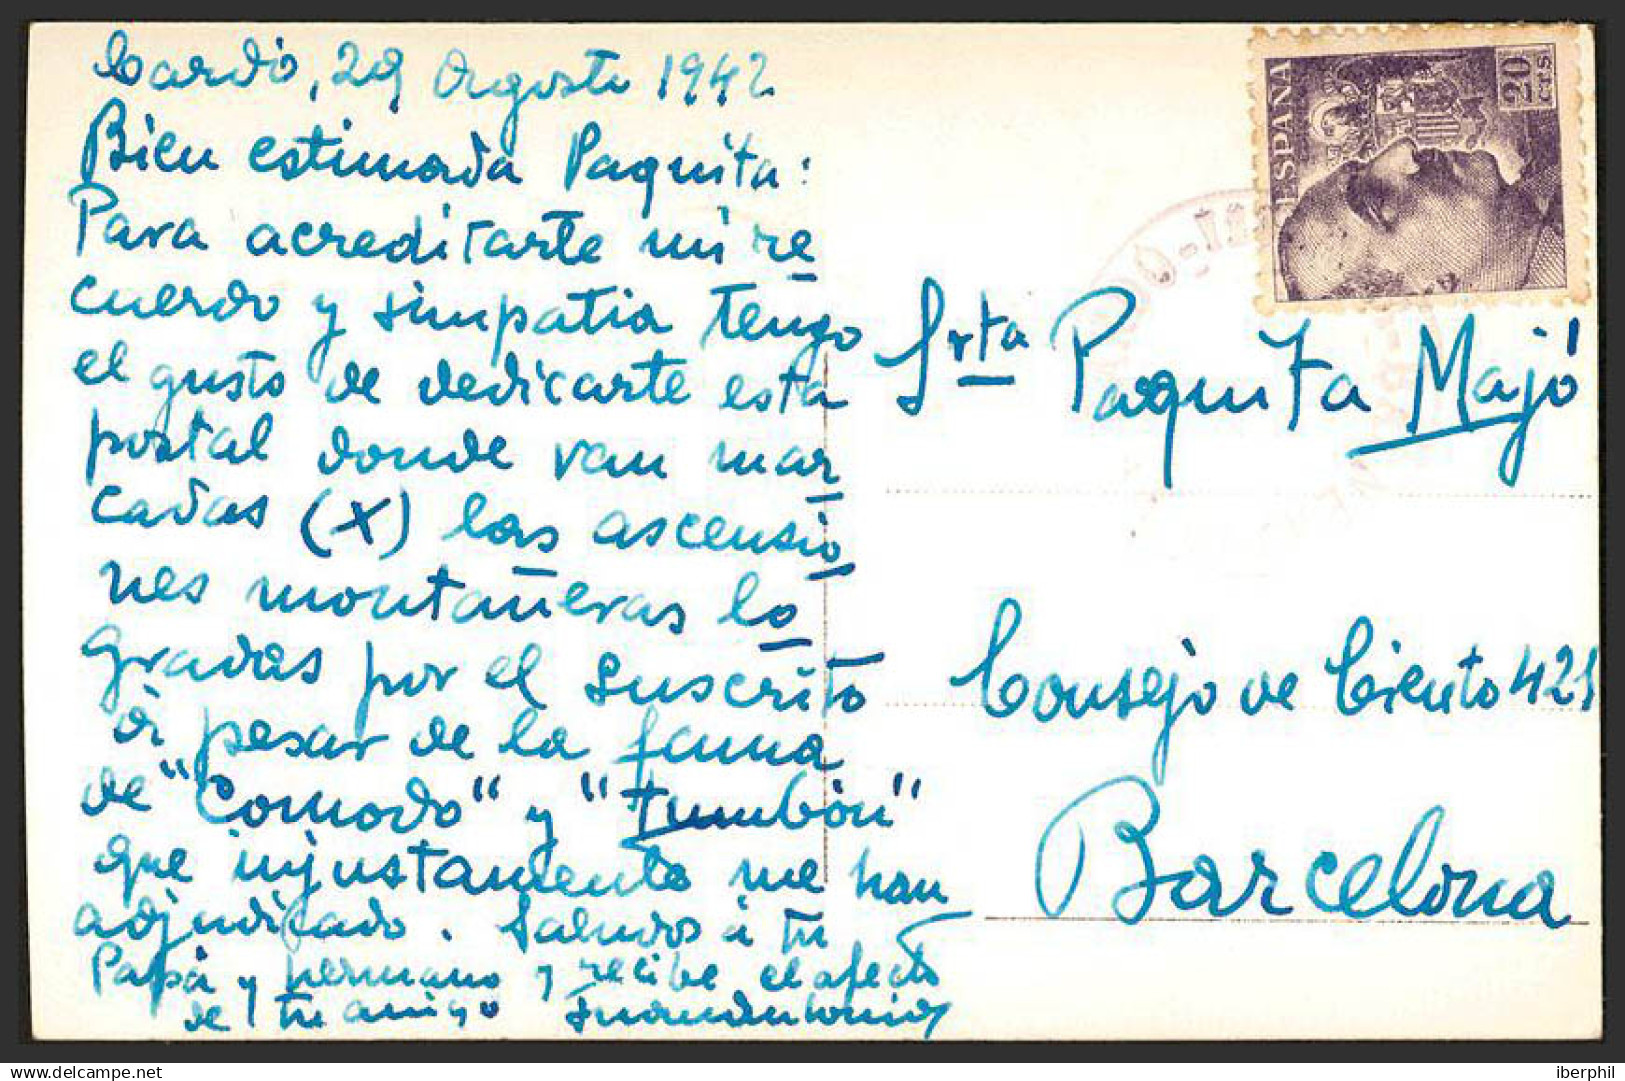 Cardó, 29 Agosto 1942
Bien estimada Paquita:
Para acreditarte mi re
cuerdo y simpatia tengo
el gusto de dedicarte esta
postal donde van mar
cadas (X) las ascensio
nes montañeras lo
gradas por el suscrito
à pesar de la fama
de "Comodo" y "tumbón"
que injustamente me han
adjudicado. Saludos à tu
Papá y hermano y recibe el afecto
de tu amigo Juan Antonio
ESPAÑA
20
CTS
Srta Paquita Majó
Consejo de Ciento 421
Barcelona
iberphil